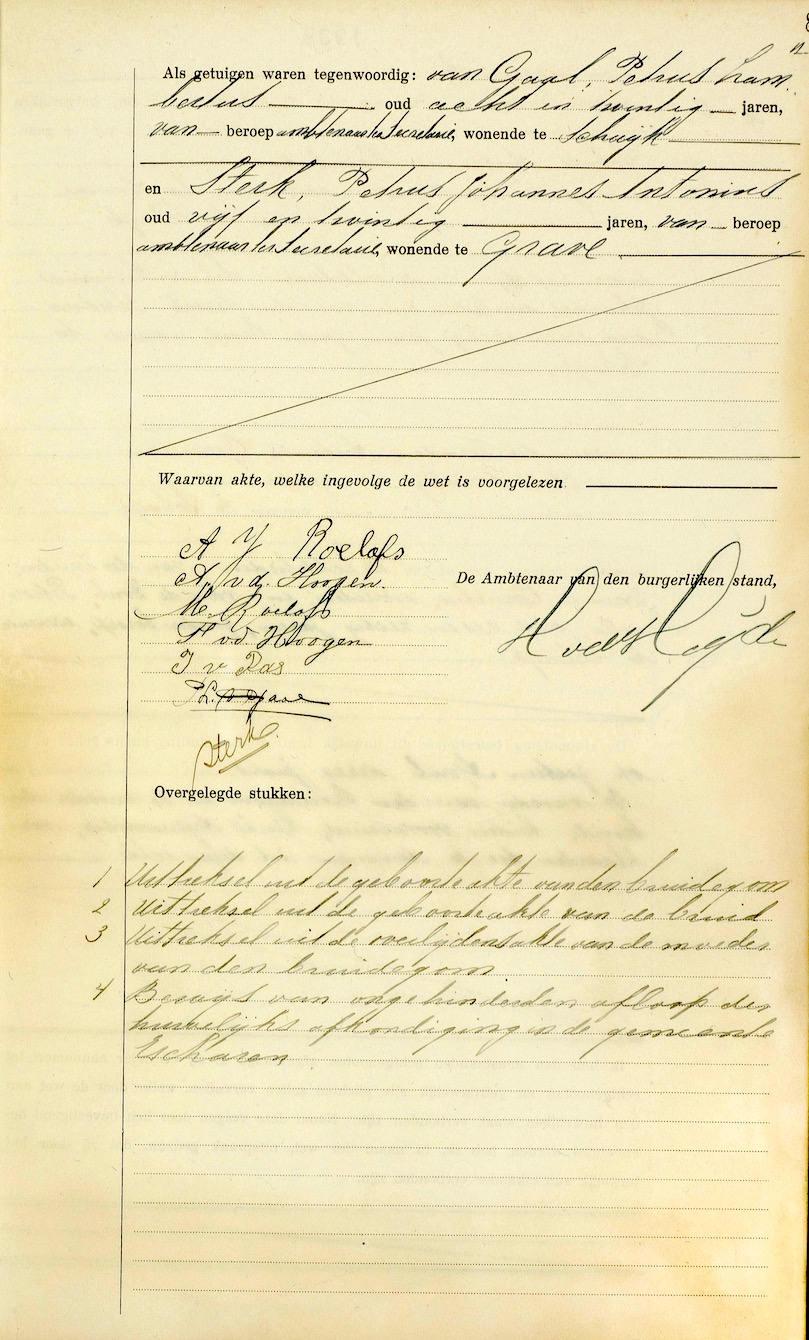 Als getuigen waren tegenwoordig: van Gaal, Petrus Lam
bertus oud acht en twintig jaren,
van beroep ambtenaar ter secretarie, wonende te Schayk
en Sterk, Petrus Johannes Antonius
oud vijf en twintig jaren, van beroep
ambtenaar ter secretarie, wonende te Grave
Waarvan akte, welke ingevolge de wet is voorgelezen
A J Roelofs
A. v.d. Hoogen.
De Ambtenaar van den burgerlijken stand,
M. Roelofs
H vd Hoogen
J v Ras
Sterk
Overgelegde stukken:
1 Uittreksel uit de geboorteakte van den bruidegom
2 Uittreksel uit de geboorteakte van de bruid
3 Uittreksel uit de overlijdensakte van de moeder
van den bruidegom
4 Bewijs van ongehinderden afloop der
huwelijks afkondiging in de gemeente
Escharen